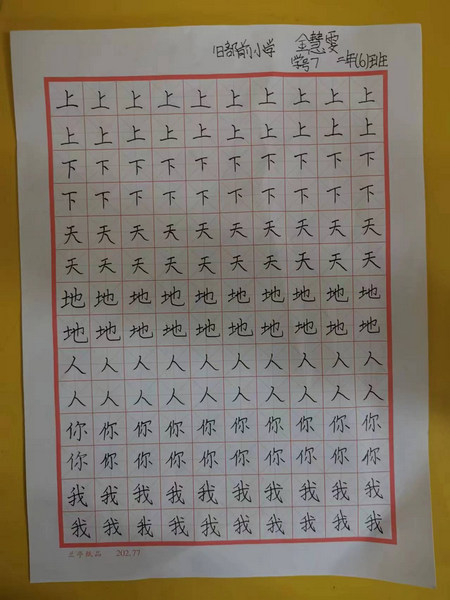 旧部前小学 金慧雯
学号7 二年(6)班
上上上上上上上上上上
上上上上上上上上上上
下下下下下下下下下下
下下下下下下下下下下
天天天天天天天天天天
天天天天天天天天天天
地地地地地地地地地地
地地地地地地地地地地
人人人人人人人人人人
人人人人人人人人人人
你你你你你你你你你你
你你你你你你你你你你
我我我我我我我我我我
我我我我我我我我我我
202.77